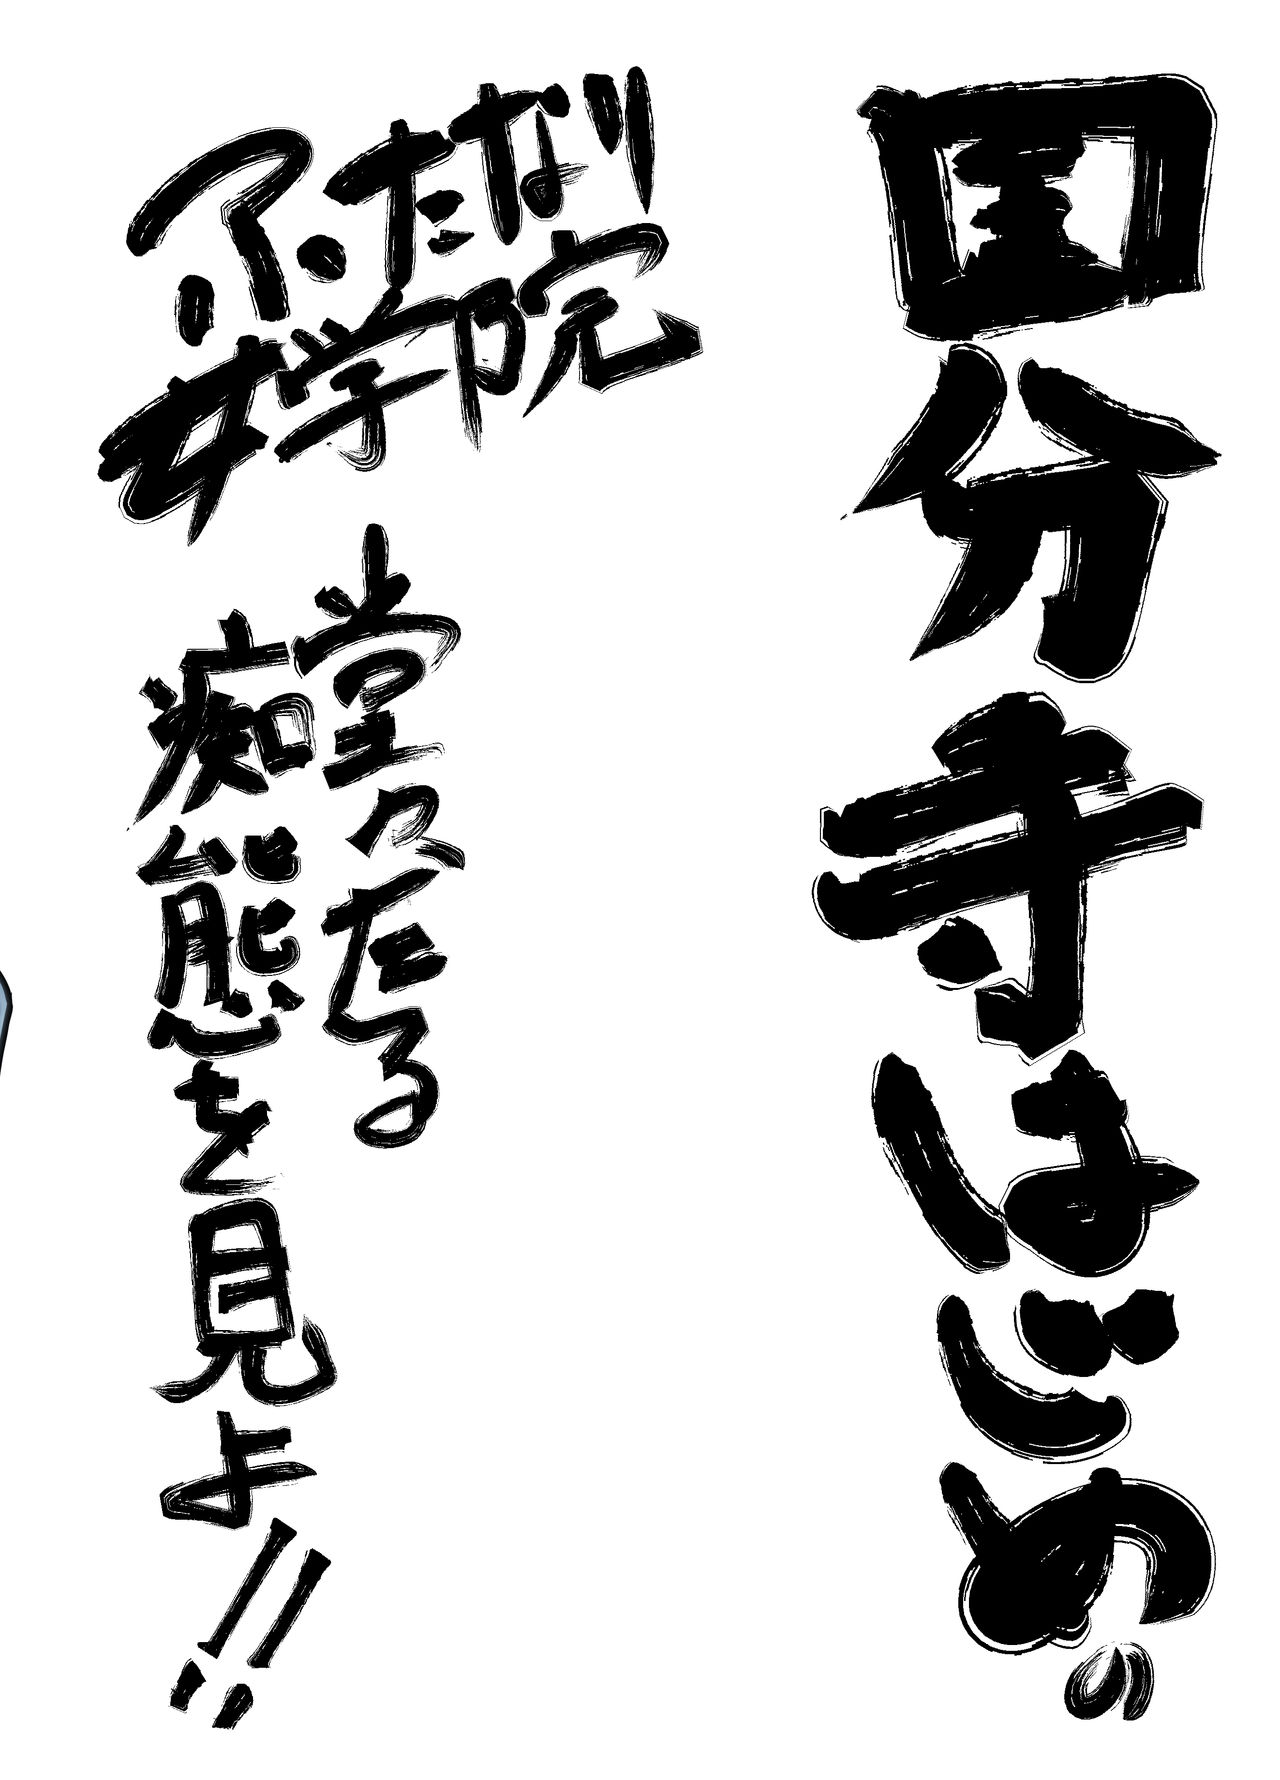 国分寺はじめの
ふたなり
#学院
堂々たる
痴態を見よ!!